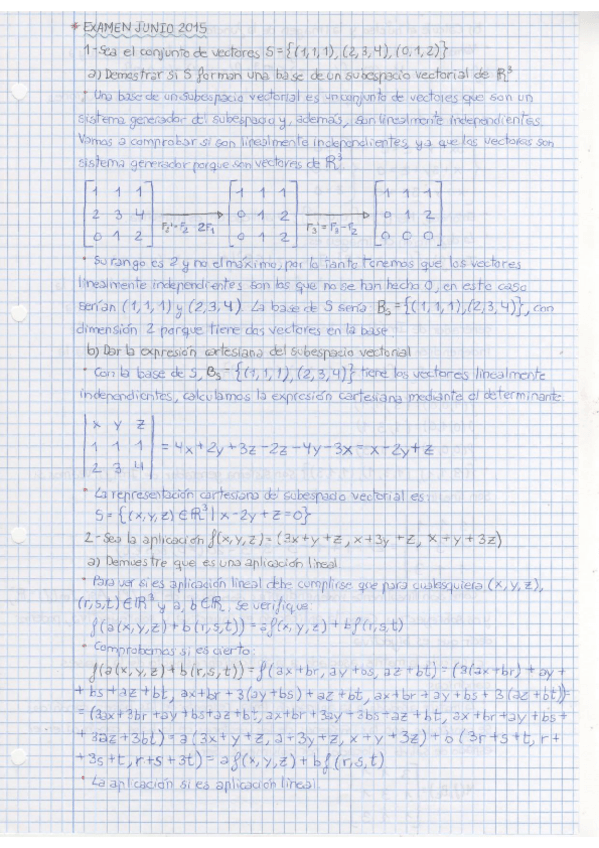 * EXAMEN JUNIO 2015
1-Sea el conjunto de vectores S={(1,1,1),(2,3,4),(0,1,2)}
a) Demostrar si S forman una base de un subespacio vectorial de ℝ³
• Una base de un subespacio vectorial es un conjunto de vectores que son un
sistema generador del subespacio y, además, son linealmente independientes.
Vamos a comprobar si son linealmente independientes, ya que los vectores son
sistema generador porque son vectores de ℝ³
[1 1 1] [1 1 1] [1 1 1]
[2 3 4] → [0 1 2] → [0 1 2]
[0 1 2] F₂'=F₂ 2F₁ [0 1 2] F₃'=F₃-F₂ [0 0 0]
• Su rango es 2 y no el máximo, por lo tanto tenemos que los vectores
linealmente independientes son los que no se han hecho 0, en este caso
serían (1,1,1) y (2,3,4). La base de S sería B_S={(1,1,1),(2,3,4)}, con
dimensión 2 porque tiene dos vectores en la base
b) Dar la expresión cartesiana del subespacio vectorial
• Con la base de S, B_S={(1,1,1),(2,3,4)} tiene los vectores linealmente
independientes, calculamos la expresión cartesiana mediante el determinante:
|x y z|
|1 1 1| = 4x+2y+3z-2z-4y-3x=x-2y+z
|2 3 4|
• La representación cartesiana del subespacio vectorial es:
S={(x,y,z)∈ℝ³| x-2y+z=0}
2-Sea la aplicación f(x,y,z)=(3x+y+z,x+3y+z,x+y+3z)
a) Demuestre que es una aplicación lineal
• Para ver si es aplicación lineal debe cumplirse que para cualesquiera (x,y,z),
(r,s,t)∈ℝ³ y a,b∈ℝ, se verifique:
f(a(x,y,z)+b(r,s,t))=af(x,y,z)+bf(r,s,t)
• Comprobemos si es cierto:
f(a(x,y,z)+b(r,s,t))=f(ax+br,ay+bs,az+bt)=(3(ax+br)+ay+
+bs+az+bt,ax+br+3(ay+bs)+az+bt,ax+br+ay+bs+3(az+bt))=
=(3ax+3br+ay+bs+az+bt,ax+br+3ay+3bs+az+bt,ax+br+ay+bs+
+3az+3bt)=a(3x+y+z,x+3y+z,x+y+3z)+b(3r+s+t,r+
+3s+t,r+s+3t)=af(x,y,z)+bf(r,s,t)
• La aplicación si es aplicación lineal.